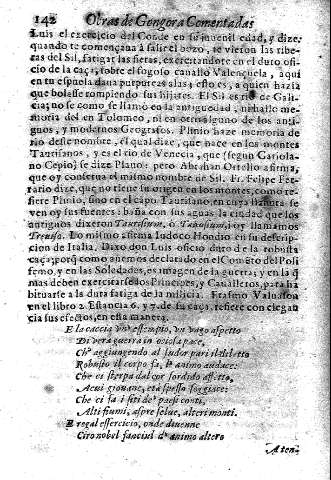 142 Obras de Gongora Comentadas
Luis el exercicio del Conde en su juvenil edad, y dize:
quando te començaua à salir el bozo, te vieron las ribe-
ras del Sil, fatigar las fieras, exercitandote en el duro ofi-
cio de la caça, sobre el fogoso cauallo Valençuela, a qui
en tu espuela daua purpureas alas; esto es, a quien hazia
que bolasse rompiendo sus hijares. El Sil es rio de Gali-
cia; no se como se llamò en la antiguedad, ni hallo me
moria del en Tolomeo, ni en otro alguno de los anti-
guos, y modernos Geografos. Plinio haze memoria de
rio deste nombre, el qual dize, que nace en los montes
Taurisanos, y es el rio de Venecia, que (segun Cariola-
no Cepio) se dize Plauto: pero Abrahan Ortelio afirma,
que oy conserua el mismo nombre de Sil. Fr. Felipe Fer-
rario dize, que no tiene su origen en los montes, como re-
fiere Plinio, sino en el capo Taurisano, en cuya llanura se
ven oy sus fuentes: baña con sus aguas la ciudad que los
antiguos dixeron Taurisium, ò Taruisium, y oy llamamos
Treuiso. Lo mismo afirma Ludoco Hondio en su descrip-
cion de Italia. Dixo don Luis oficio duro de la robusta
caça, porq como auemos declarado en el Cometo del Poli
femo, y en las Soledades, es imagen de la guerra; y en la q
mas deben exercitarse los Principes, y Caualleros, para ha
bituarse a la dura fatiga de la milicia. Erasmo Valuason
en el libro 2. Estancia 6. y 7. de su caça, refiere con elegan
cia sus efectos, en esta manera.
E la caccia vn' essempio, vn vago aspetto
Di vera guerra in otiosa pace,
Ch' aggiungendo al sudor pari il diletto
Robusto il corpo fà, l' animo audace:
Che ci sterpa dal cor sordido affetto,
A cui giouane, età spesso soggiace:
Che ci fa i siti de' paesi conti,
Alti fiumi, aspre selue, alteri monti.
E regal essercicio, onde diuenne
Ciro nobel fanciul d' animo altero
A ten-